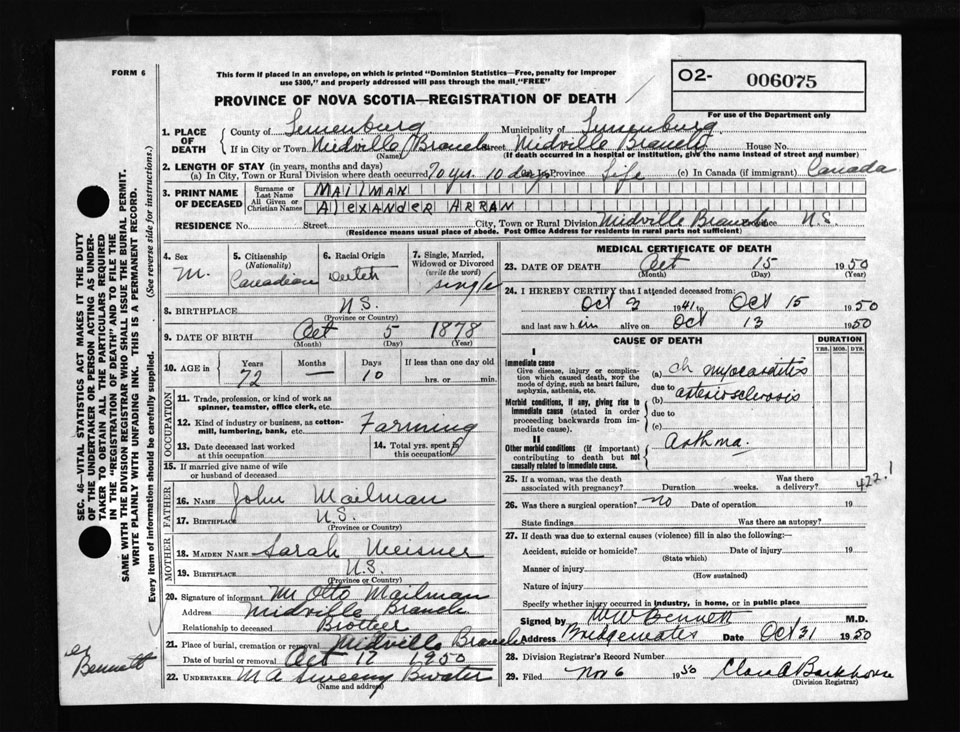 FORM 6
This form if placed in an envelope, on which is printed "Dominion Statistics—Free, penalty for improper
use $300," and properly addressed will pass through the mail "FREE"
O2- 006075
For use of the Department only
PROVINCE OF NOVA SCOTIA—REGISTRATION OF DEATH
1. PLACE OF DEATH County of Lunenburg Municipality of Lunenburg
If in City or Town Midville Branch Street Midville Branch House No.
(Name) (If death occurred in a hospital or institution, give the name instead of street and number)
2. LENGTH OF STAY (in years, months and days)
(a) In City, Town or Rural Division where death occurred 70 yrs. 10 days Province Life (c) In Canada (if immigrant) Canada
3. PRINT NAME OF DECEASED Surname or Last Name MAILMAN
All Given or Christian Names AlEXANDER ARRAN
RESIDENCE No. Street City, Town or Rural Division Midville Branch N.S.
(Residence means usual place of abode. Post Office Address for residents in rural parts not sufficient)
4. Sex M.
5. Citizenship (Nationality) Canadian
6. Racial Origin Dutch
7. Single, Married, Widowed or Divorced (write the word) single
8. BIRTHPLACE N.S.
(Province or Country)
9. DATE OF BIRTH Oct 5 1878
(Month) (Day) (Year)
10. AGE in Years 72 Months — Days 10 If less than one day old hrs. or min.
OCCUPATION
11. Trade, profession, or kind of work as
spinner, teamster, office clerk, etc.
12. Kind of industry or business, as cotton-
mill, lumbering, bank, etc. Farming
13. Date deceased last worked
at this occupation
14. Total yrs. spent in
this occupation
15. If married give name of wife
or husband of deceased
FATHER
16. NAME John Mailman
17. BIRTHPLACE N.S.
(Province or Country)
MOTHER
18. MAIDEN NAME Sarah Meisner
19. BIRTHPLACE N.S.
(Province or Country)
20. Signature of informant Mr Otto Mailman
Address Midville Branch
Relationship to deceased Brother
21. Place of burial, cremation or removal Midville Branch
Date of burial or removal Oct 17 1950
22. UNDERTAKER M A Sweeny Bwater
(Name and address)
MEDICAL CERTIFICATE OF DEATH
23. DATE OF DEATH Oct 15 1950
(Month) (Day) (Year)
24. I HEREBY CERTIFY that I attended deceased from:
Oct 3 1941 to Oct 15 1950
and last saw him alive on Oct 13 1950
CAUSE OF DEATH
DURATION
YRS. MOS. DYS.
I
Immediate cause
Give disease, injury or complica-
tion which caused death, not the
mode of dying, such as heart failure,
asphyxia, asthenia, etc.
(a) ch myocarditis
due to
Morbid conditions, if any, giving rise to
immediate cause (stated in order
proceeding backwards from im-
mediate cause).
(b) arteriosclerosis
due to
(c)
II
Other morbid conditions (if important)
contributing to death but not
causally related to immediate cause.
Asthma.
422.1
25. If a woman, was the death
associated with pregnancy? Duration weeks. Was there
a delivery?
26. Was there a surgical operation? no Date of operation 19
State findings Was there an autopsy?
27. If death was due to external causes (violence) fill in also the following:—
Accident, suicide or homicide? Date of injury 19
(State which)
Manner of injury
(How sustained)
Nature of injury
Specify whether injury occurred in industry, in home, or in public place
Signed by W W Bennett M.D.
Address Bridgewater Date Oct 31 1950
28. Division Registrar's Record Number
29. Filed Nov 6 1950 Clara A Barkhouse
(Division Registrar)
SEC. 46—VITAL STATISTICS ACT MAKES IT THE DUTY
OF THE UNDERTAKER OR PERSON ACTING AS UNDER-
TAKER TO OBTAIN ALL THE PARTICULARS REQUIRED
IN THE "REGISTRATION OF DEATH" AND TO FILE THE
SAME WITH THE DIVISION REGISTRAR WHO SHALL ISSUE THE BURIAL PERMIT.
WRITE PLAINLY WITH UNFADING INK. THIS IS A PERMANENT RECORD.
Every item of information should be carefully supplied. (See reverse side for instructions.)
Bennett